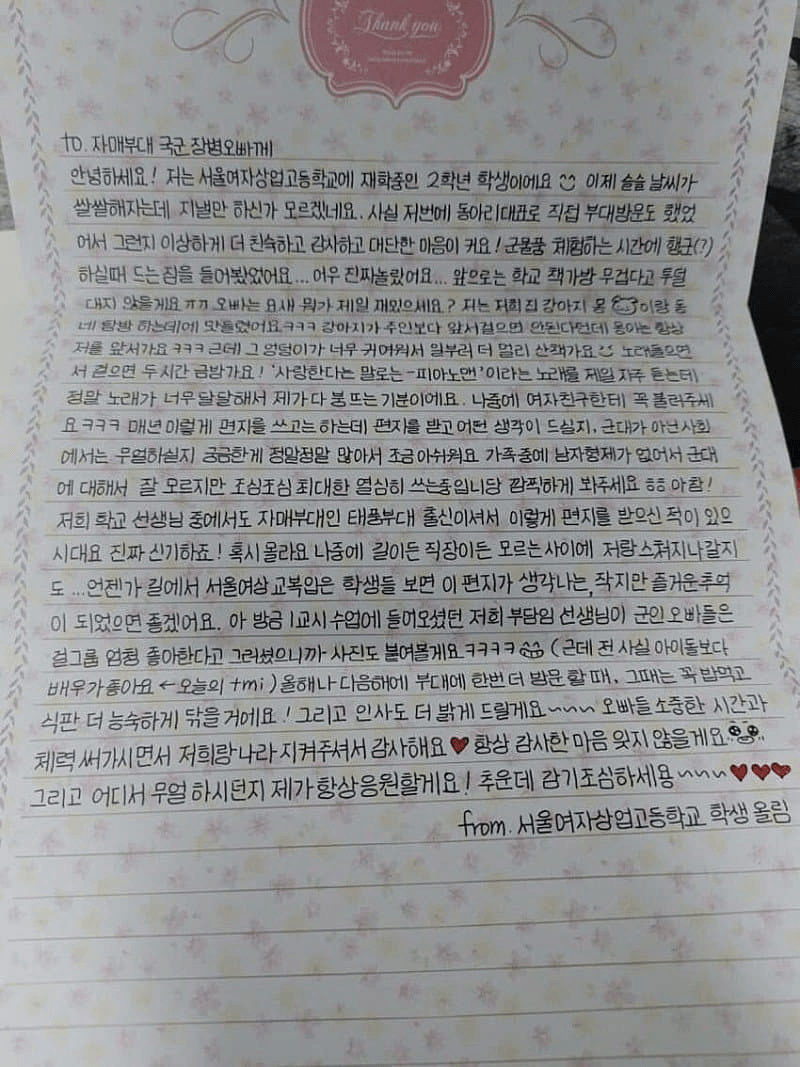 Thank you
to. 자매부대 국군 장병오빠께
안녕하세요! 저는 서울여자상업고등학교에 재학중인 2학년 학생이에요 이제 슬슬 날씨가
쌀쌀해지는데 지낼만 하신가 모르겠네요. 사실 저번에 동아리대표로 직접 부대방문도 했었
어서 그런지 이상하게 더 친숙하고 감사하고 대단한 마음이 커요! 군물품 체험하는 시간에 행군(?)
하실때 드는 짐을 들어봤었어요... 어우 진짜놀랐어요... 앞으로는 학교 책가방 무겁다고 투덜
대지 않을게요 ㄲㄲ 오빠는 요새 뭐가 제일 재밌으세요? 저는 저희 집 강아지 몽이랑 동
네 탐방 하는데에 맛들렸어요ㅋㅋㅋ 강아지가 주인보다 앞서걸으면 안된다던데 몽이는 항상
저를 앞서가요ㅋㅋㅋ 근데 그 엉덩이가 너무 귀여워서 일부러 더 멀리 산책가요 노래들으면
서 걸으면 두시간 금방가요! '사랑한다는 말로는-피아노맨'이라는 노래를 제일 자주 듣는데
정말 노래가 너무 달달해서 제가 다 붕 뜨는 기분이에요. 나중에 여자친구한테 꼭 불러주세
요ㅋㅋㅋ 매년 이렇게 편지를 쓰고는 하는데 편지를 받고 어떤 생각이 드실지, 군대가 아닌 사회
에서는 무얼하실지 궁금한게 정말정말 많아서 조금 아쉬워요 가족중에 남자형제가 없어서 군대
에 대해서 잘 모르지만 조심조심 최대한 열심히 쓰는중입니당 깜찍하게 봐주세요 ㅎㅎ 아참!
저희 학교 선생님 중에서도 자매부대인 태풍부대 출신이셔서 이렇게 편지를 받으신 적이 있으
시대요 진짜 신기하죠! 혹시 몰라요 나중에 길이든 직장이든 모르는사이에 저랑 스쳐지나갈지
도 ...언젠가 길에서 서울여상 교복입은 학생들 보면 이 편지가 생각나는, 작지만 즐거운추억
이 되었으면 좋겠어요. 아 방금 1교시 수업에 들어오셨던 저희 부담임 선생님이 군인 오빠들은
걸그룹 엄청 좋아한다고 그러셨으니까 사진도 붙여볼게요ㅋㅋㅋㅋ (근데 전 사실 아이돌보다
배우가좋아요 ← 오늘의 tmi) 올해나 다음해에 부대에 한번 더 방문 할 때, 그때는 꼭 밥먹고
식판 더 능숙하게 닦을 거에요! 그리고 인사도 더 밝게 드릴게요~~~ 오빠들 소중한 시간과
체력 써가시면서 저희랑 나라 지켜주셔서 감사해요♥ 항상 감사한 마음 잊지 않을게요
그리고 어디서 무얼 하시던지 제가 항상응원할게요! 추운데 감기조심하세용~~~♥♥♥
from. 서울여자상업고등학교 학생 올림